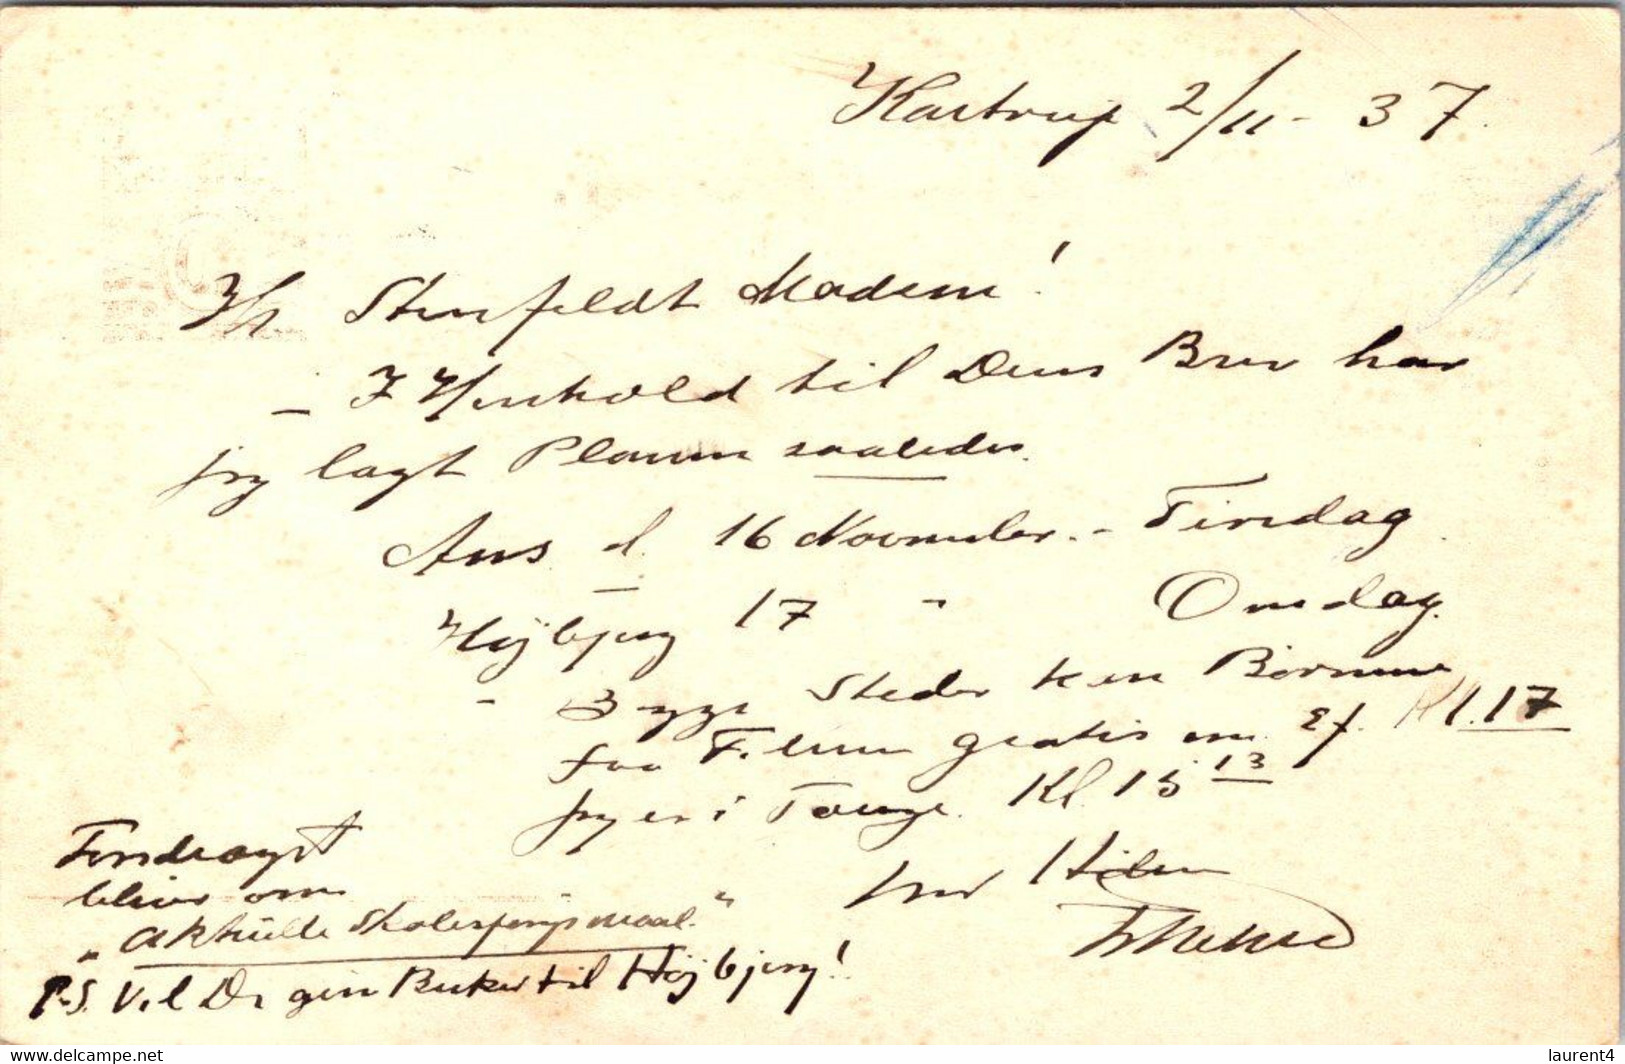 Kastrup 2/11 - 37.
Hr. Stenfeldt Madsen!
- I Henhold til Deres Brev har
jeg lagt Planen saaledes.
Ans d. 16 November. - Tirsdag.
Højbjerg 17 " Onsdag.
- Begge Steder kan Børnene
faa Filmen gratis om Ef. Kl. 17
jeg er i Tange. Kl. 15 13
Foredraget
bliver om
„Aktuelle Skolespørgsmaal."
Hilsen
P.S. Vil De gøre til Højbjerg!
www.delcampe.net
laurent4